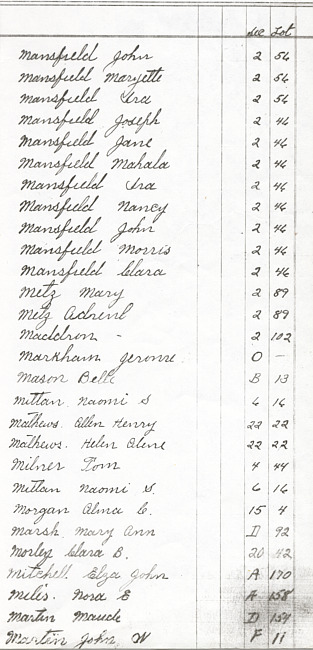 Sec Lot
Mansfield John 2 56
Mansfield Maryette 2 56
Mansfield Ira 2 56
Mansfield Joseph 2 46
Mansfield Jane 2 46
Mansfield Mahala 2 46
Mansfield Ira 2 46
Mansfield Nancy 2 46
Mansfield John 2 46
Mansfield Morris 2 46
Mansfield Clara 2 46
Metz Mary 2 89
Metz 2 89
Maddron - 2 102
Markham Jerome O -
Mason Belle B 13
Mittan Naomi S 6 16
Mathews. Allen Henry 22 22
Mathews. Helen Olene 22 22
Milner Tom 4 44
Mittan Naomi S. 6 16
Morgan Alma C. 15 4
Marsh. Mary Ann D 92
Morley Clara B. 20 42
Mitchell. Elza John A 170
Miles. Nora E A 158
Martin Maude D 154
Martin John W F 11